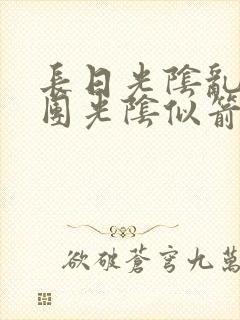 長日光陰亂
團光陰似箭
欲破蒼穹九萬